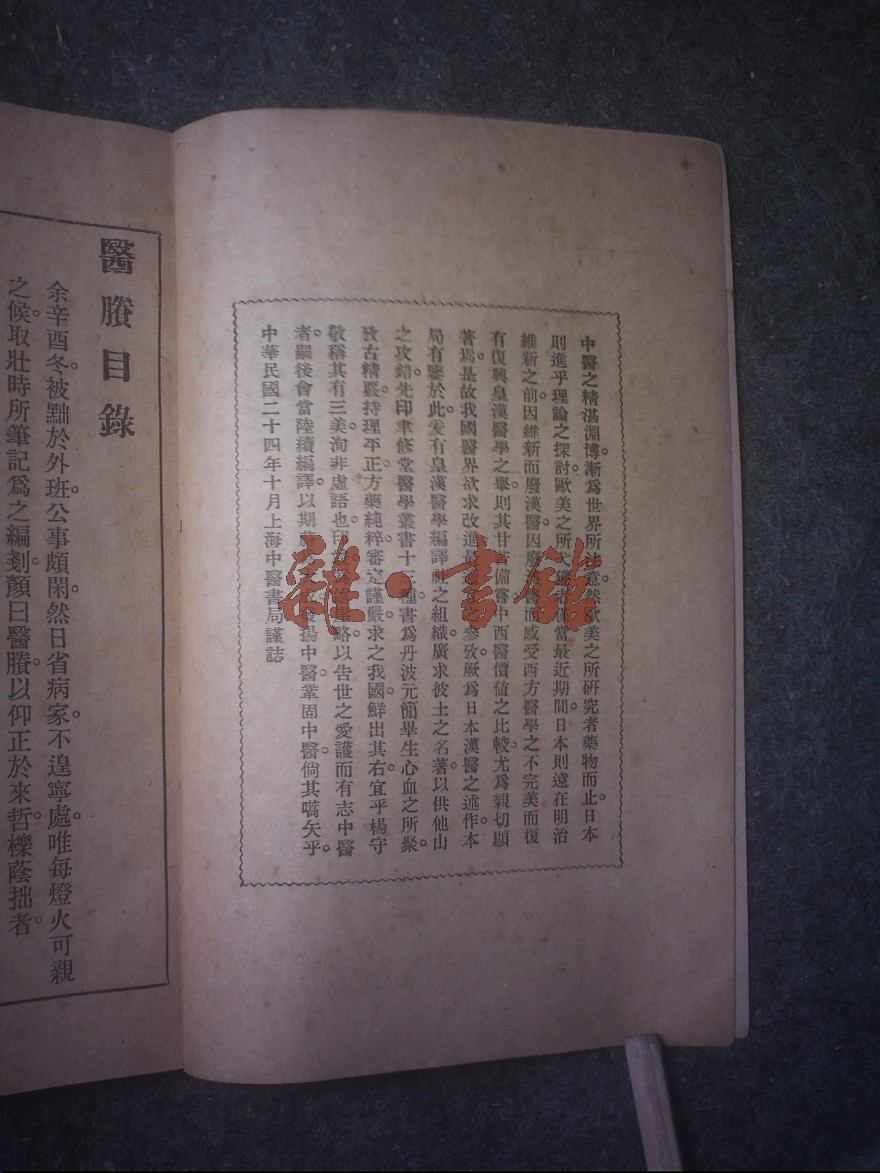 中醫之精湛淵博。漸爲世界所注意。然歐美之所硏究者藥物而止。日本
則進乎理論之探討。歐美之所
當最近期間。日本則遠在明治
維新之前。因維新而廢漢醫。因廢漢醫而感受西方醫學之不完美而復
有復興皇漢醫學之舉。則其甘苦備嘗。中西醫價値之比較。尤爲親切顯
著焉。是故我國醫界欲求改進最
之參攷。厥爲日本漢醫之述作。本
局有鑒於此。爰有皇漢醫學編譯社之組織。廣求彼土之名著。以供他山
之攻錯。先印聿修堂醫學叢書十三種。書爲丹波元簡畢生心血之所聚。
攷古精覈。持理平正。方藥純粹。審定謹嚴。求之我國。鮮出其右。宜乎楊守
敬稱其有三美。洵非虛語也。印
略。以告世之愛護而有志中醫
者。嗣後會當陸續編譯。以期
發揚中醫。鞏固中醫。倘其嚆矢乎。
中華民國二十四年十月上海中醫書局謹誌
雜·書館
醫賸目錄
余辛酉冬。被黜於外班。公事頗閑。然日省病家。不遑寧處。唯每燈火可親
之候。取壯時所筆記。爲之編剗。顏曰醫賸。以仰正於來哲。櫟蔭拙者